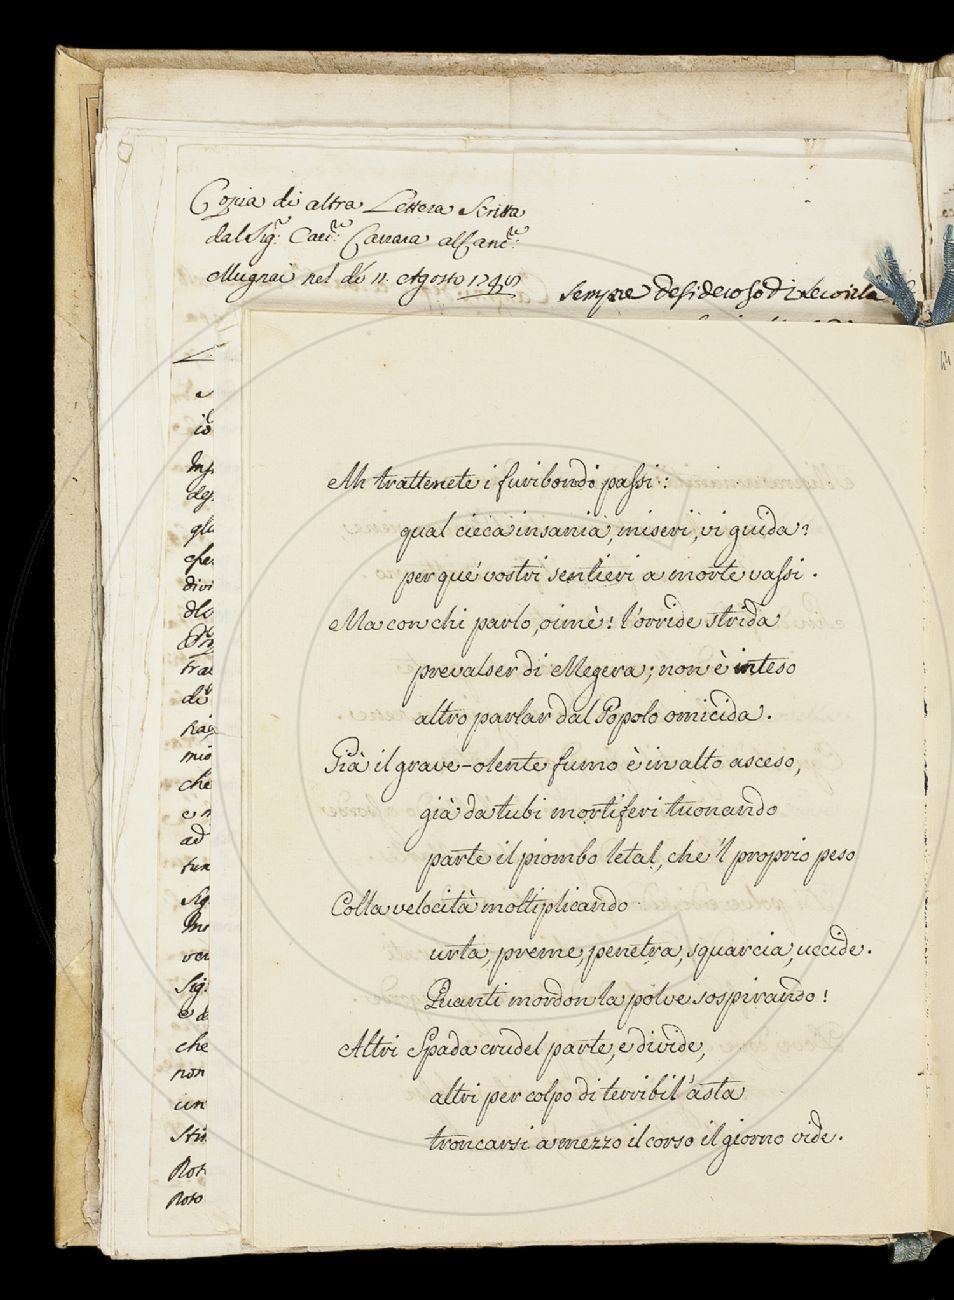 Copia di altra Lettera Scritta
dal Sig.r Cav.re Carrara al Canc.re
Mugnai nel dí 11 Agosto 1746
sempre desideroso di
io
deg.
glo
che
divi
tra
di
mio
che
e n
ad
tun
Sig.
ver
Sig.
e de
che
non
un
Roto
Ah trattenete i furibondi passi:
qual cieca insania, miseri, vi guida?
per que' vostri sentieri a morte vassi.
Ma con chi parlo, oimè! l'orride strida
prevalser di Megera; non è inteso
altro parlar dal Popolo omicida.
Già il grave-olente fumo è in alto asceso,
già da tubi mortiferi tuonando
parte il piombo letal, che 'l proprio peso
Colla velocità moltiplicando
urta, preme, penetra, squarcia, uccide.
Quanti mordon la polve sospirando!
Altri Spada crudel parte, e divide,
altri per colpo di terribil' asta
troncarsi a mezzo il corso il giorno vide.